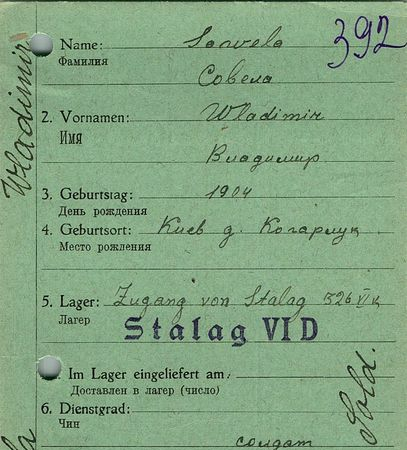 392
Name: Sowela
Фамилия
Совела
2. Vornamen: Wladimir
Имя
Владимир
3. Geburtstag: 1904
День рождения
4. Geburtsort: Киев д. Кагарлук
Место рожления
5. Lager: Zugang von Stalag 326 VI K
Лагер
Stalag VI D
Im Lager eingeliefert am:
Доставлен в лагер (число)
6. Dienstgrad:
Чин
солдат
Wladimir
Sold.